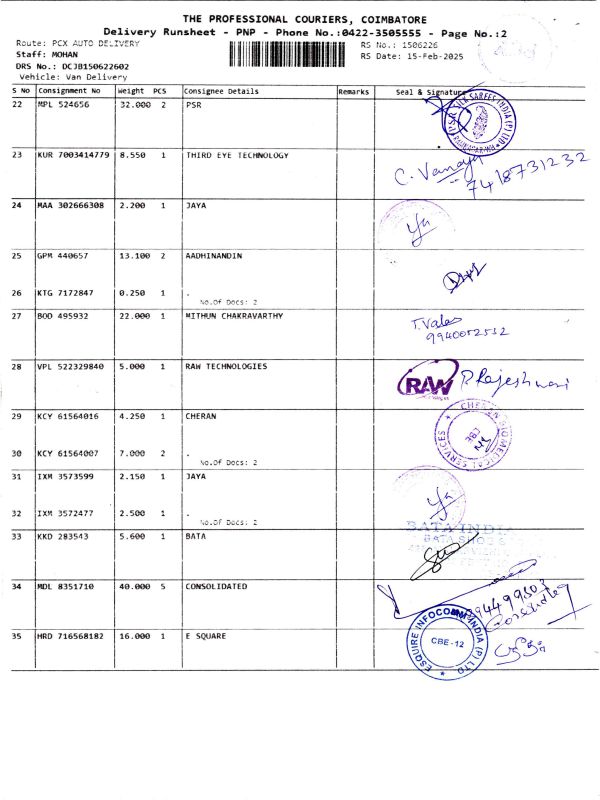 THE PROFESSIONAL COURIERS, COIMBATORE
Delivery Runsheet - PNP - Phone No.:0422-3505555 - Page No.:2
Route: PCX AUTO DELIVERY RS No.: 1506226
Staff: MOHAN RS Date: 15-Feb-2025
DRS No.: DCJB150622602
Vehicle: Van Delivery
S No Consignment No Weight PCS Consignee Details Remarks Seal & Signature
22 MPL 524656 32.000 2 PSR
23 KUR 7003414779 8.550 1 THIRD EYE TECHNOLOGY
C. Vanaja
7418731232
24 MAA 302666308 2.200 1 JAYA
25 GPM 440657 13.100 2 AADHINANDIN
26 KTG 7172847 0.250 1 .
No.Of Docs: 2
27 BOD 495932 22.000 1 MITHUN CHAKRAVARTHY
9940052532
28 VPL 522329840 5.000 1 RAW TECHNOLOGIES
RAW P. Rajeshwari
29 KCY 61564016 4.250 1 CHERAN
CHERAN BIOMEDICAL SERVICES
CBE
30 KCY 61564007 7.000 2 .
No.Of Docs: 2
31 IXM 3573599 2.150 1 JAYA
32 IXM 3572477 2.500 1 .
No.Of Docs: 2
BATA INDIA
33 KKD 283543 5.600 1 BATA
34 MDL 8351710 40.000 5 CONSOLIDATED
35 HRD 716568182 16.000 1 E SQUARE
ESQUIRE INFOCOMM INDIA (P) LTD
CBE-12